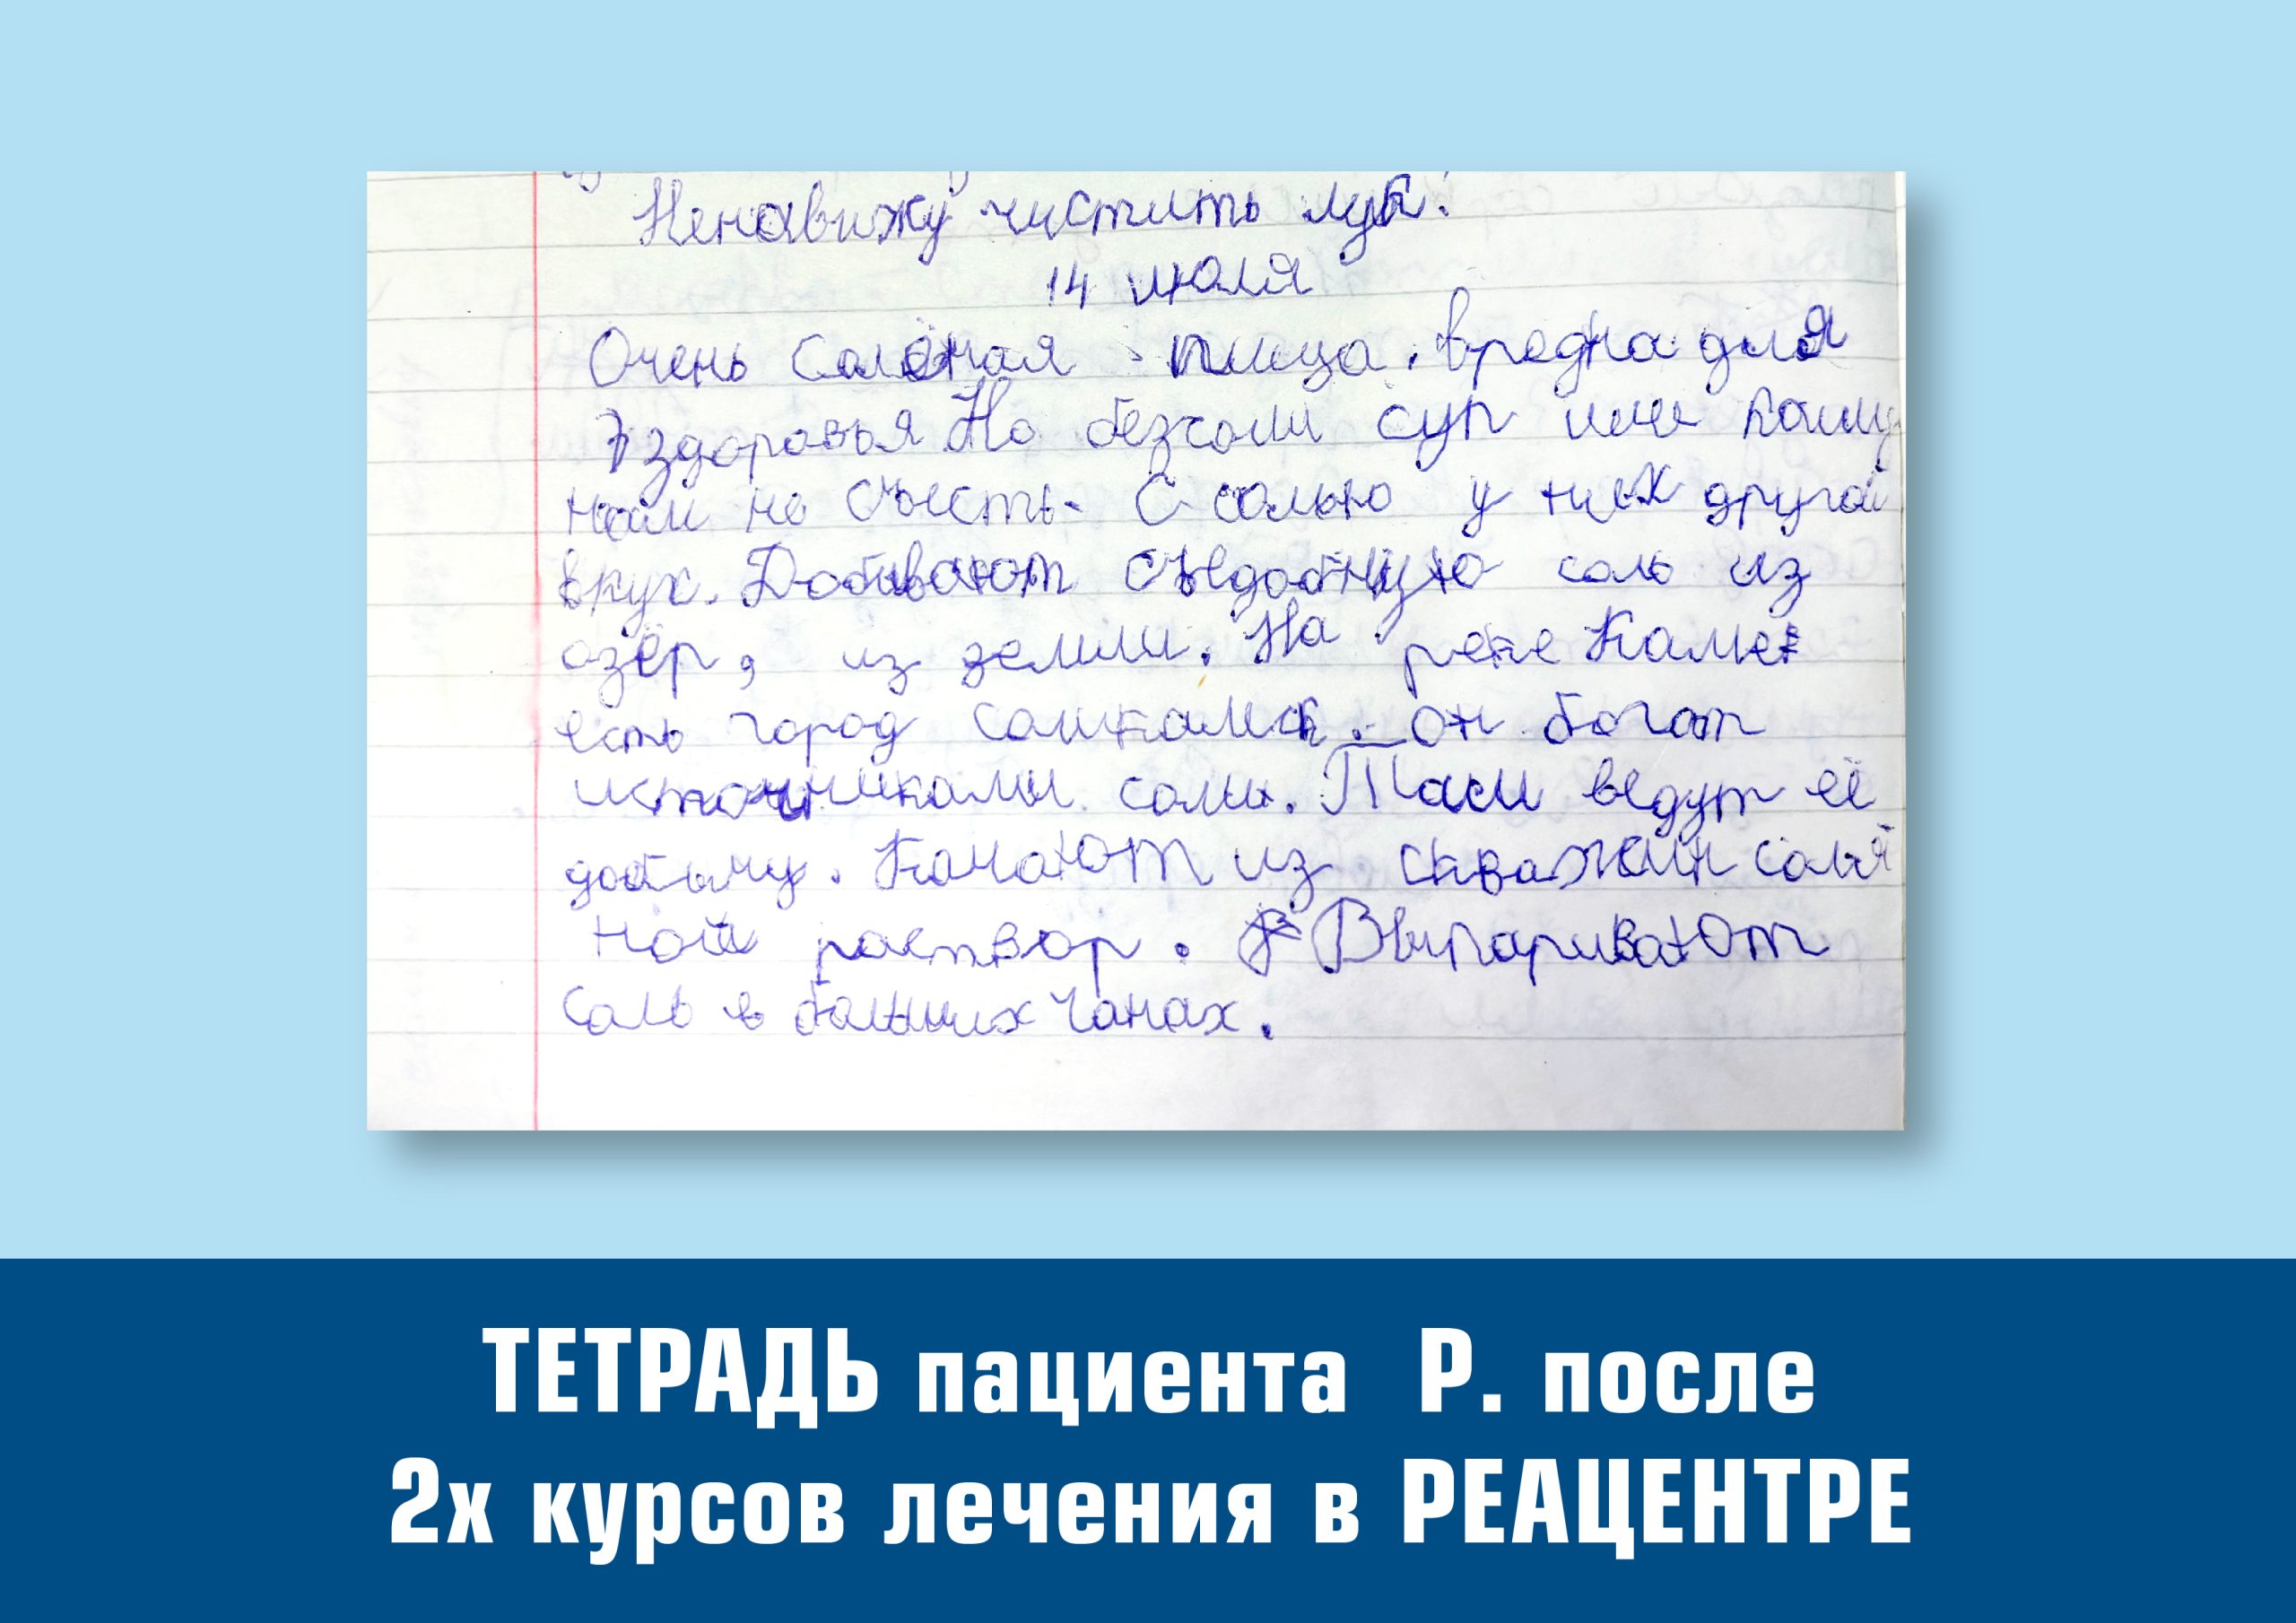 Ненавижу чистить лук!
14 июля
Очень солёная пища вредна для
здоровья Но безсоли суп или кашу
нам не съесть. С солью у них другой
вкус. Добивают съедобную соль из
озёр, из земли. На реке Каме
есть город соликамск. он богат
источниками соли. Там ведут её
добычу. Качают из скважин соля
ной раствор. Выпаривают
соль в больших чанах.
ТЕТРАДЬ пациента Р. после
2х курсов лечения в РЕАЦЕНТРЕ